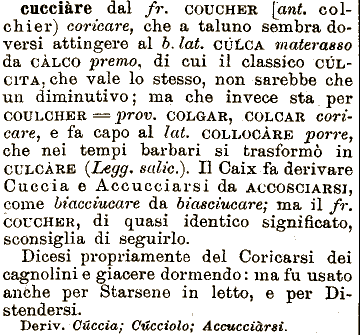 cucciàre dal fr. COUCHER [ant. col-
chier) coricare, che a taluno sembra do-
versi attingere al b. lat. CÚLCA materasso
da CÀLCO premo, di cui il classico CÚL-
CITA, che vale lo stesso, non sarebbe che
un diminutivo; ma che invece sta per
COULCHER = prov. COLGAR, COLCAR cori-
care, e fa capo al lat. COLLOCÀRE porre,
che nei tempi barbari si trasformò in
CULCÀRE (Legg. salic.). Il Caix fa derivare
Cuccia e Accucciarsi da ACCOSCIARSI,
come biacciucare da biasciucare; ma il fr.
COUCHER, di quasi identico significato,
sconsiglia di seguirlo.
Dicesi propriamente del Coricarsi dei
cagnolini e giacere dormendo: ma fu usato
anche per Starsene in letto, e per Di-
stendersi.
Deriv. Cúccia; Cúcciolo; Accucciàrsi.